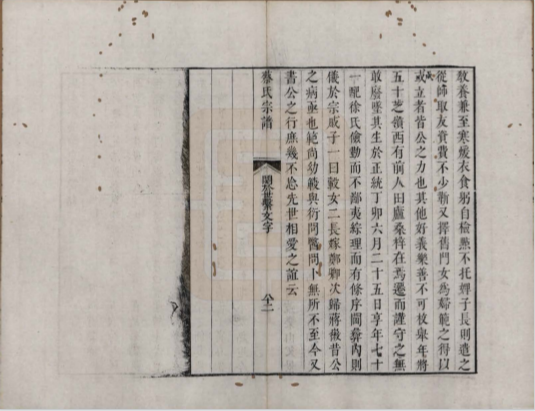 敎養兼至寒煖衣食躬自檢點不托婢子長則遣之
從師取友資費不少靳又擇舊門女爲婦範之得以
成立者皆公之力也其他好義樂善不可枚舉年將
五十芝嶺西有前人田廬桑梓在焉遷而謹守之無
敢廢墜其生於正統丁卯六月二十五日享年七十
一配徐氏儉勤而不鄙夷綜理而有條序閫彝內則
儀於宗戚子一曰毅女二長嫁鄭卿次歸蔣儀昔公
之病亟也範尚幼毅與衍問醫問卜無所不至今又
書公之行庶幾不忘先世相愛之誼云
蔡氏宗譜
關於世繫文字
八二